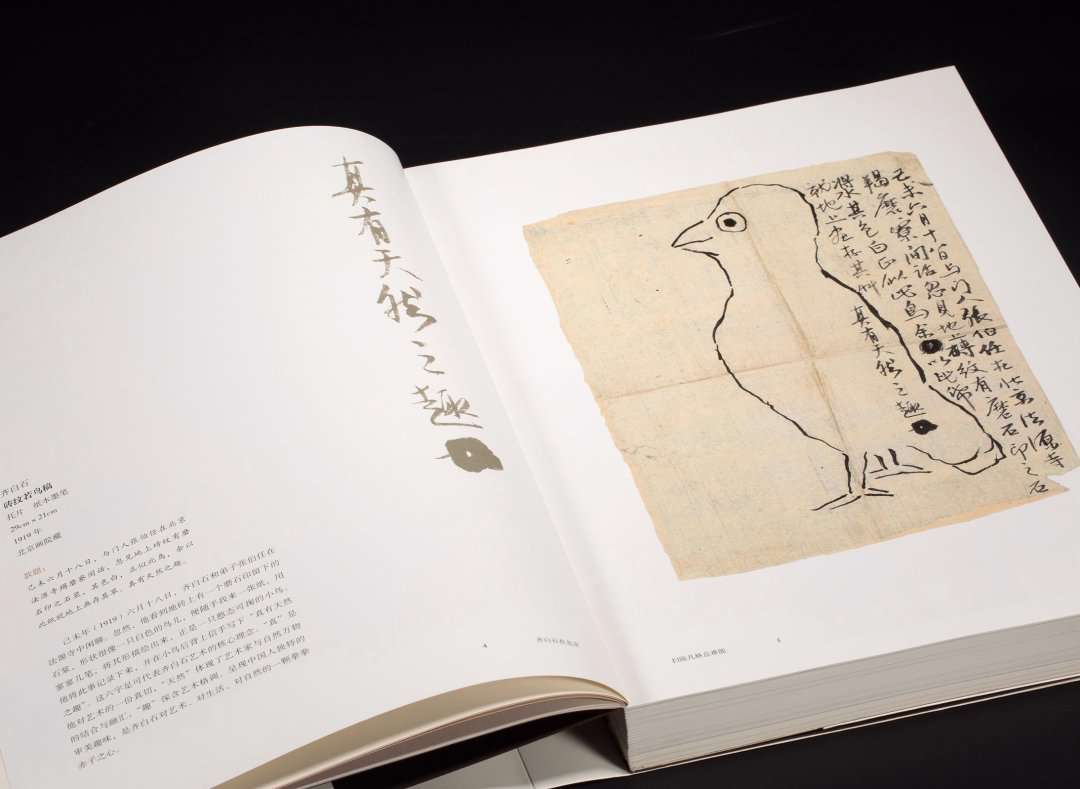 真有天然之趣
齐白石
砖纹若鸟稿
托片 纸本墨笔
29cm×21cm
1919年
北京画院藏
款题：
己未六月十八日，与门人张伯任在北京
法源寺羯磨寮闲话，忽见地上砖纹有磨
石印之石浆，其色白，正似此鸟，余以
此纸就地上画存其草。真有天然之趣。
己未年（1919）六月十八日，齐白石和弟子张伯任在
法源寺中闲聊。忽然，他看到地砖上有一个磨石印留下的
石浆，形状很像一只白色的鸟儿，便随手找来一张纸，用
寥寥几笔，将其形描绘出来，正是一只憨态可掬的小鸟。
他将此事记录下来，并在小鸟后背上信手写下“真有天然
之趣”。这六字是可代表齐白石艺术的核心理念。“真”是
他对艺术的一份真切，“天然”体现了艺术家与自然万物
的结合与融汇，“趣”深含艺术格调，呈现中国人独特的
审美趣味，是齐白石对艺术、对生活、对自然的一颗拳拳
赤子之心。
4
齐白石在北京
己未六月十八日与门人張伯任在北京法源寺
羯磨寮閒話忽見地上磚紋有磨石印之石
漿其色白正似此鳥余以此紙
就地上画存其草 真有天然之趣
扫除凡格总难能
5